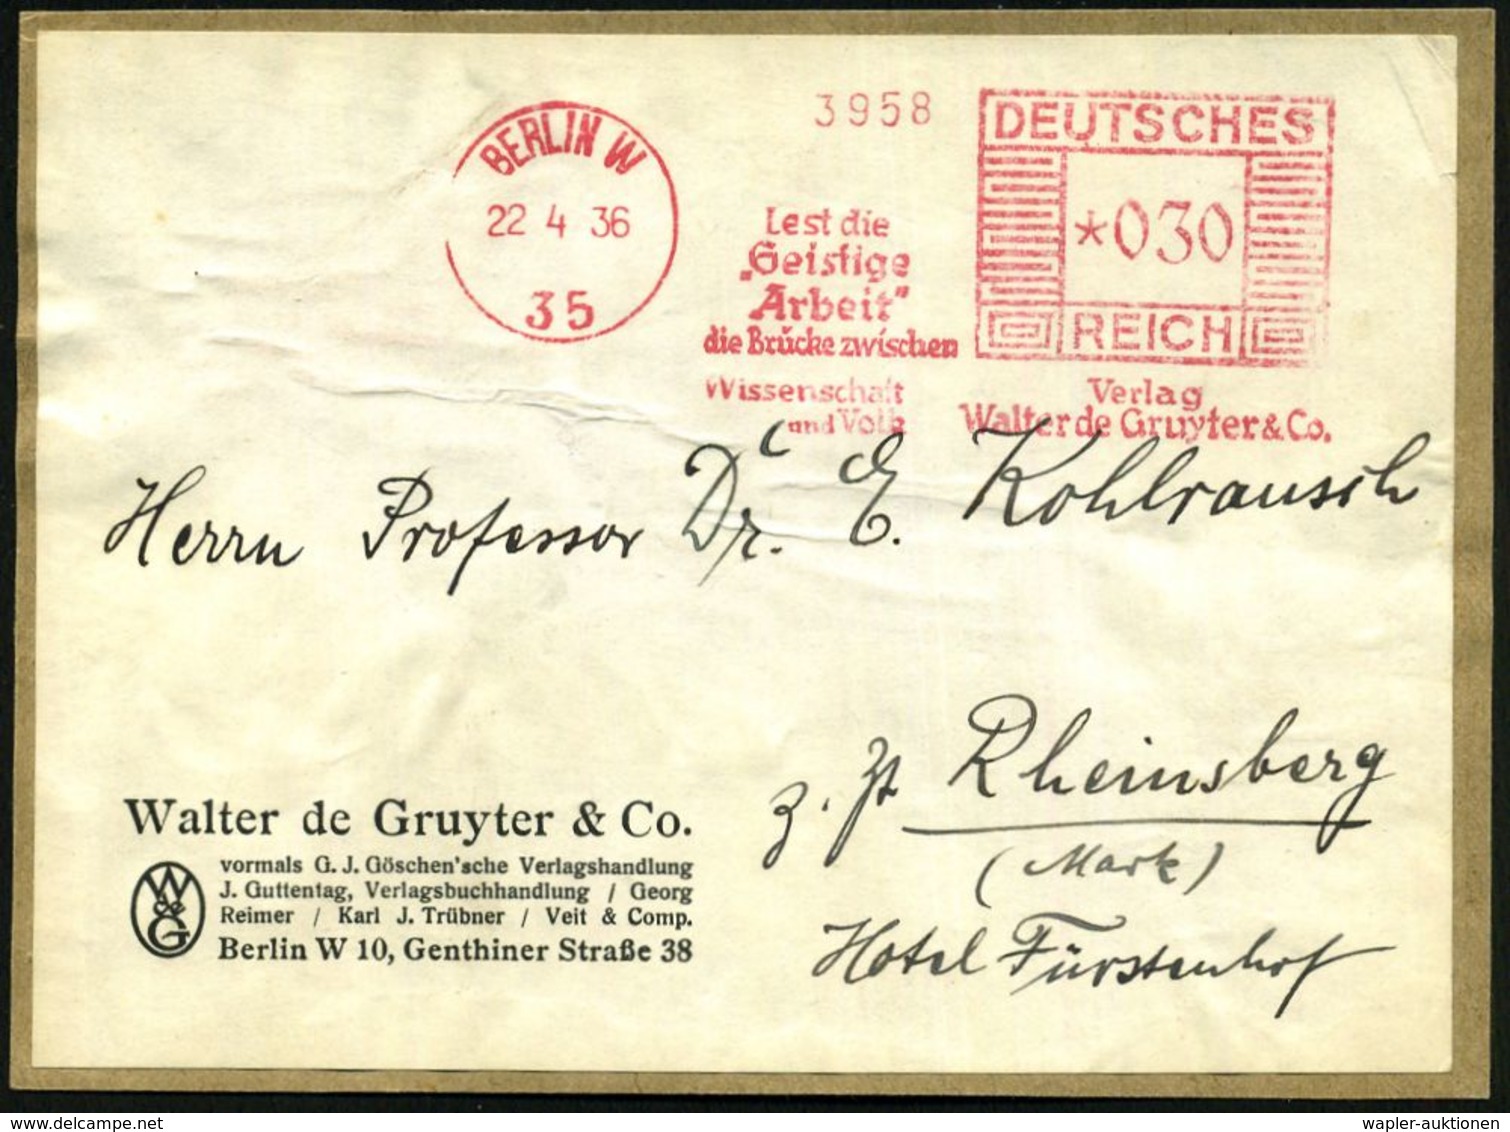 3958
BERLIN W
22 4 36
35
DEUTSCHES
*030
REICH
Lest die
„Geistige
Arbeit"
die Brücke zwischen
Wissenschaft
und Volk
Verlag
Walter de Gruyter & Co.
Herrn Professor Dr. E. Kohlrausch
z. Zt Rheinsberg
(Mark)
Hotel Fürstenhof
Walter de Gruyter & Co.
vormals G. J. Göschen'sche Verlagshandlung
J. Guttentag, Verlagsbuchhandlung / Georg
Reimer / Karl J. Trübner / Veit & Comp.
Berlin W 10, Genthiner Straße 38
W
de
G
wapler-auktionen